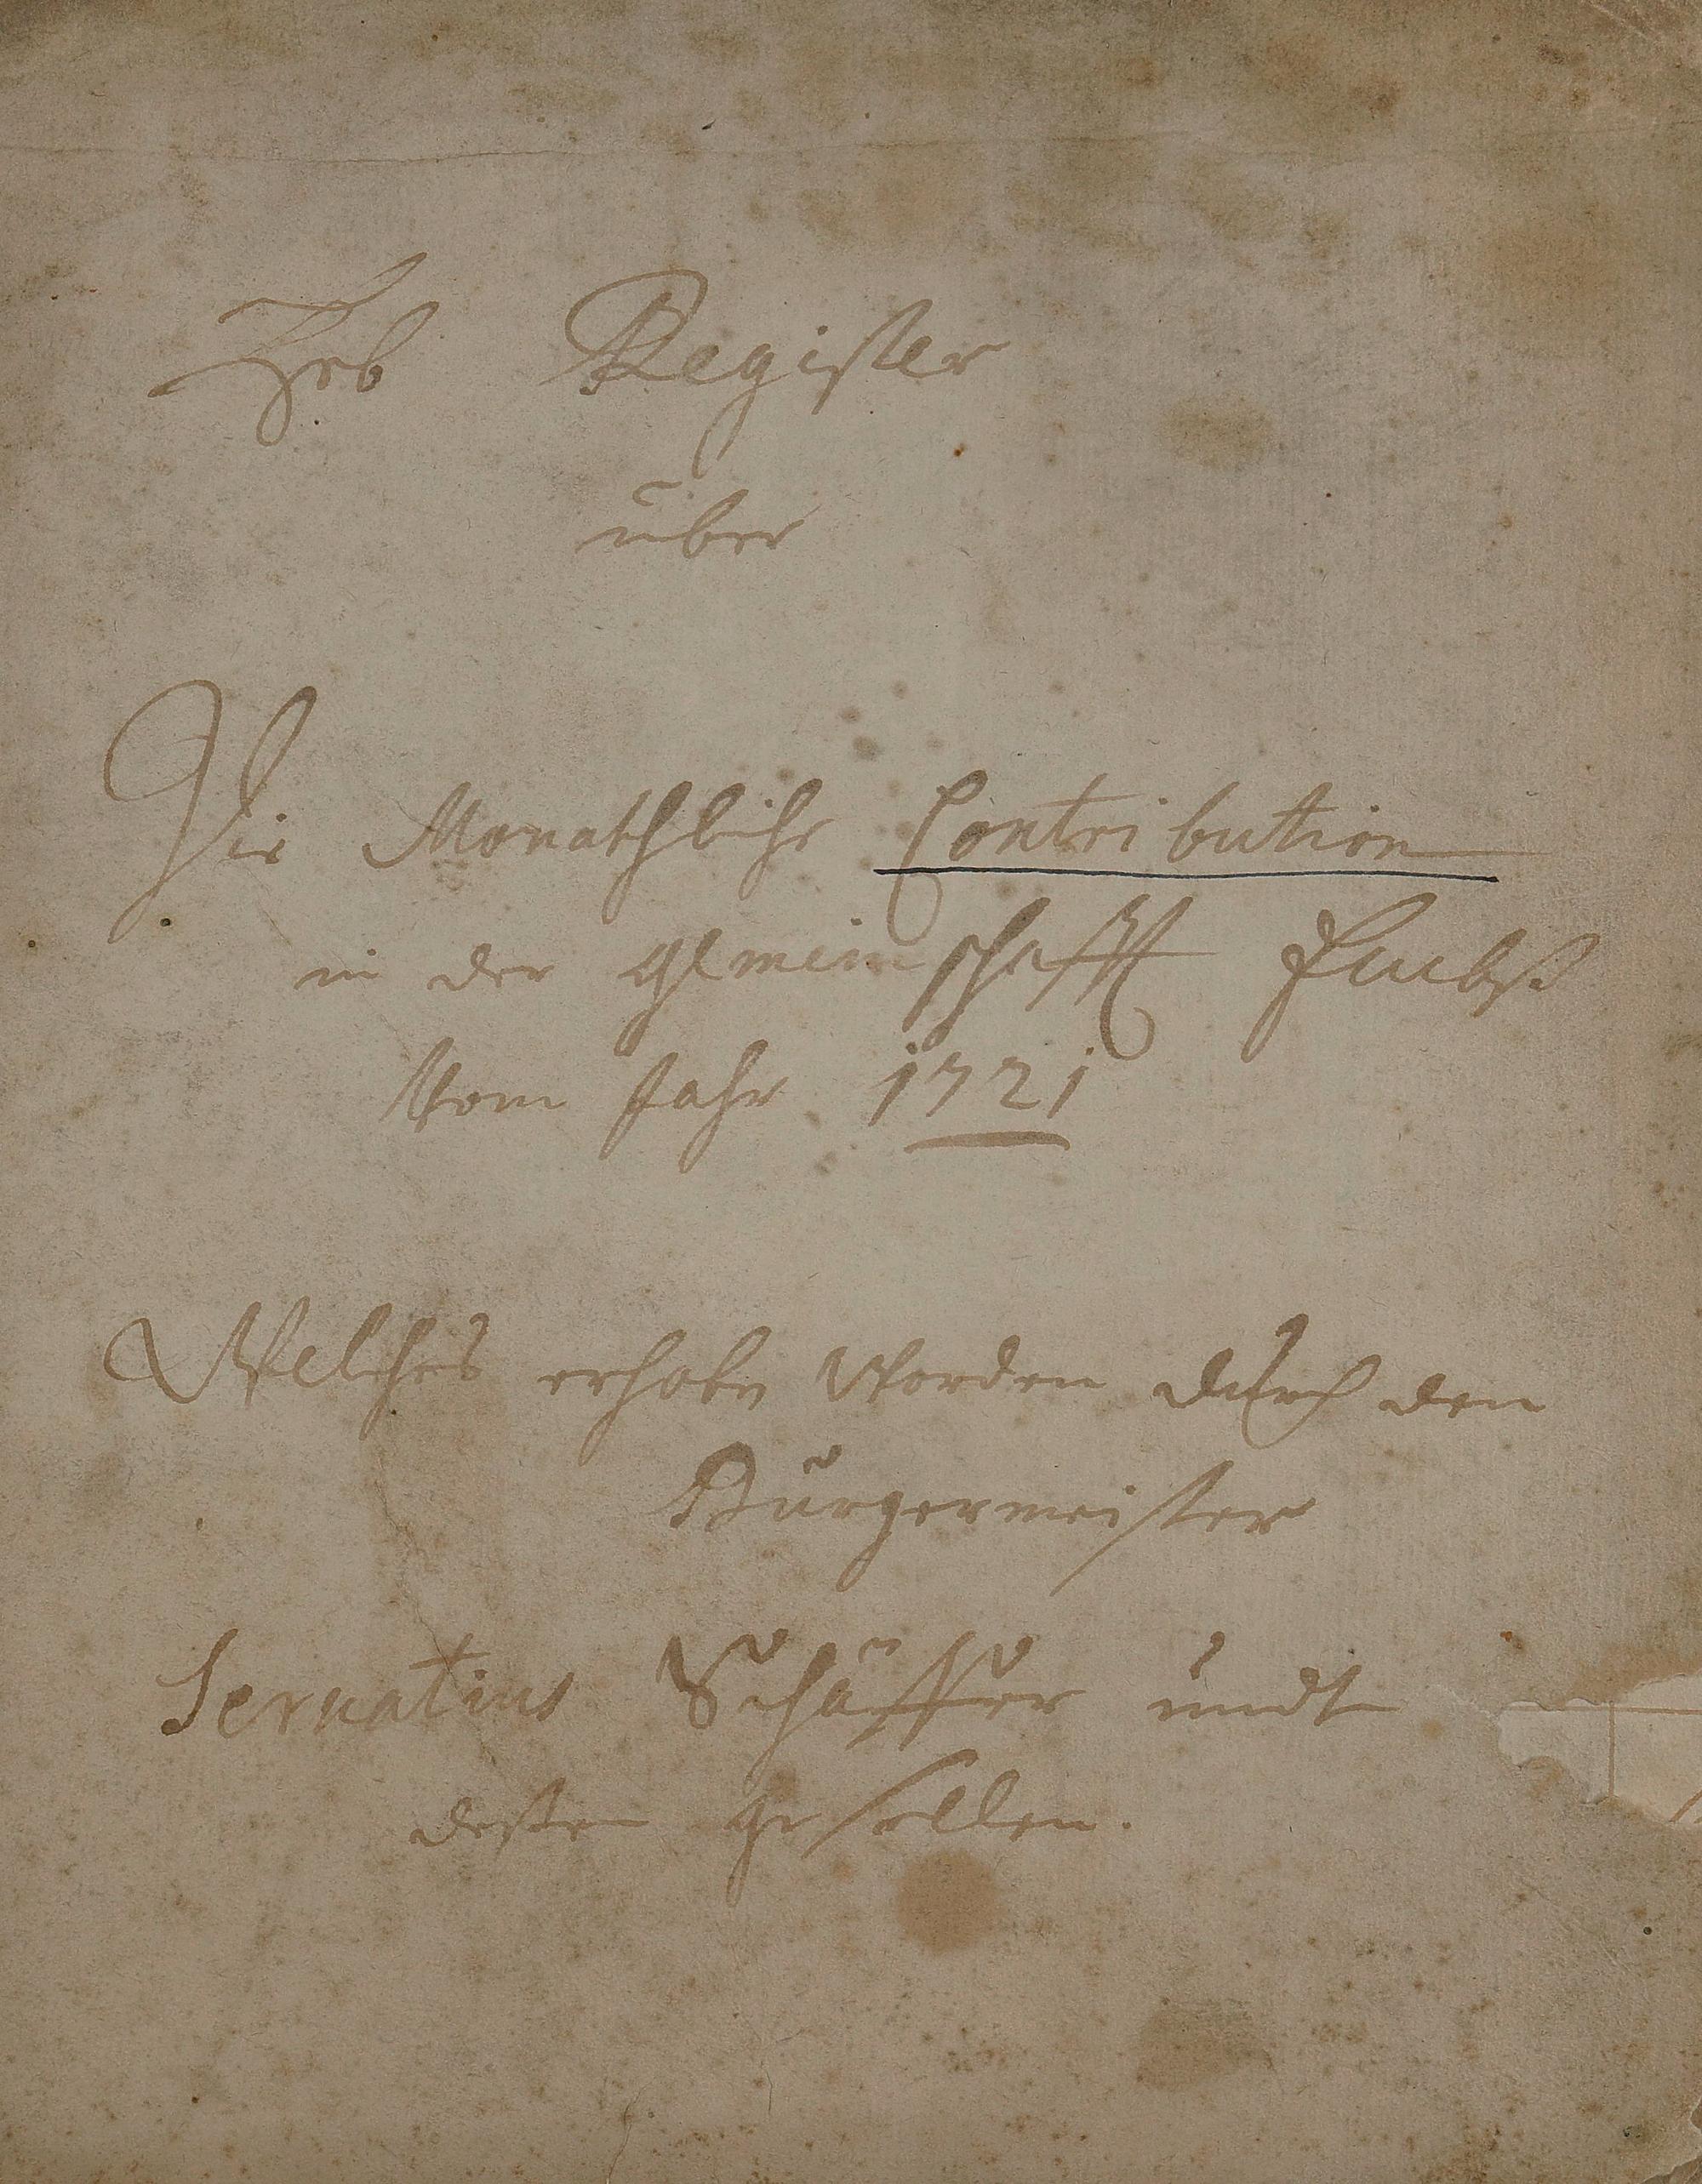 Heb Register
über
Die Monathliche Contribution
in der Gemeinschafft
Vom Jahr 1721
Welches erhoben worden durch den
Bürgermeister
Servatius Schäffer undt
dessen gesellen.